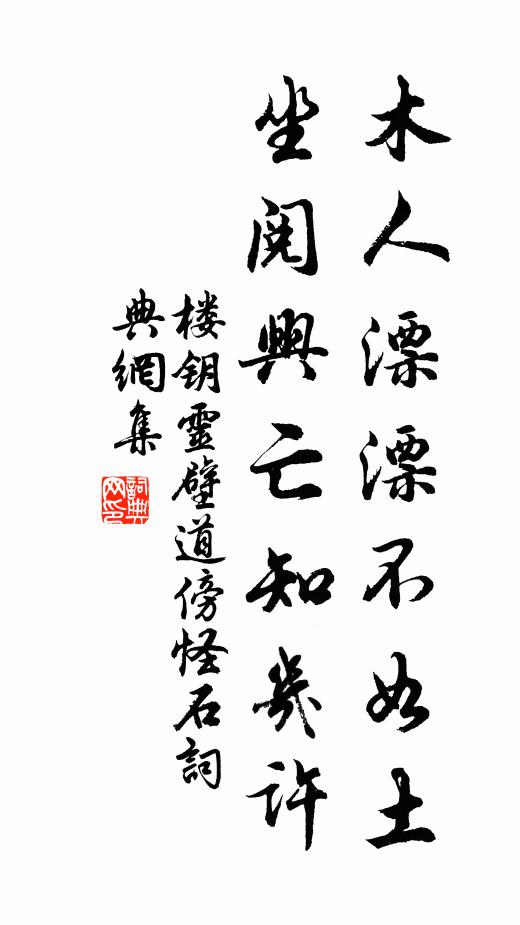 木人漂漂不如土
坐阅興亡知幾許
楼钥靈壁道傍怪石詞
典網集
詞典网印